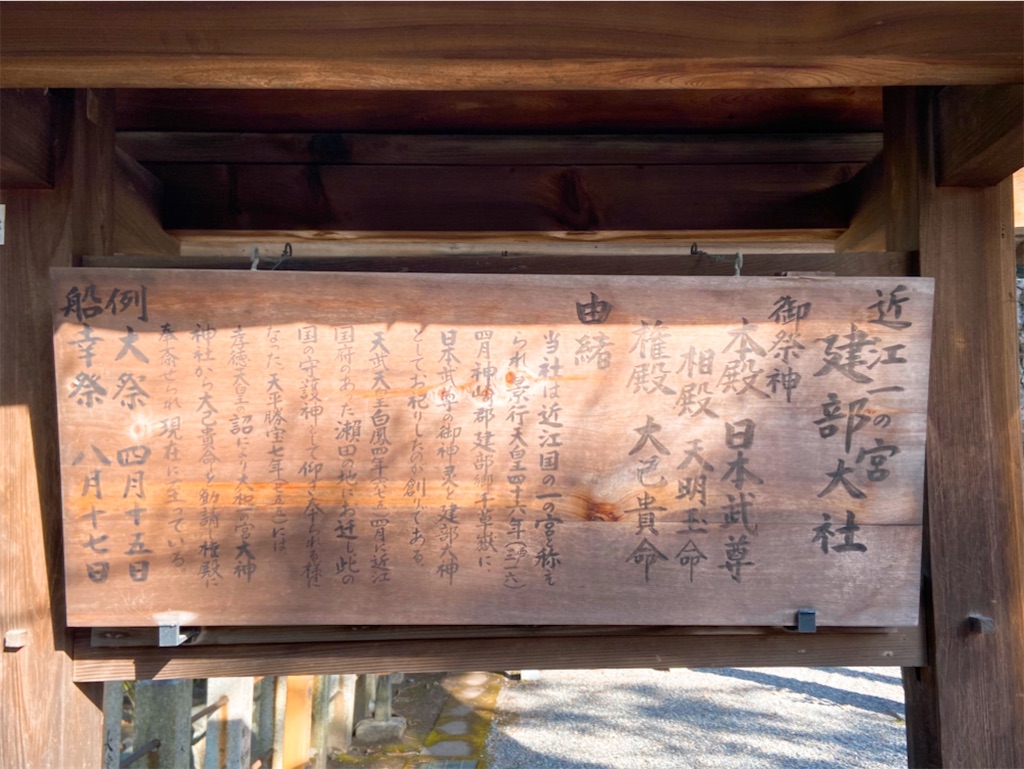 近江一の宮
建部大社
御祭神
本殿 日本武尊
相殿 天明玉命
権殿 大己貴命
由緒
当社は近江国の一の宮と称え
られ景行天皇四十六年(一一六)
四月神崎郡建部郷千草嶽に、
日本武尊の御神霊を建部大神
としてお祀したのが創りである
天武天皇白鳳四年(六七五)四月に近江
国府のあった瀬田の地にお迁し此の
国の守護神として仰がれる様に
なった 天平勝宝七年(七五五)には
孝徳天皇の詔により大和一宮大神
神社から大己貴命を勧請し権殿に
奉斎され現在に至っている。
例大祭 四月十五日
船幸祭 八月十七日